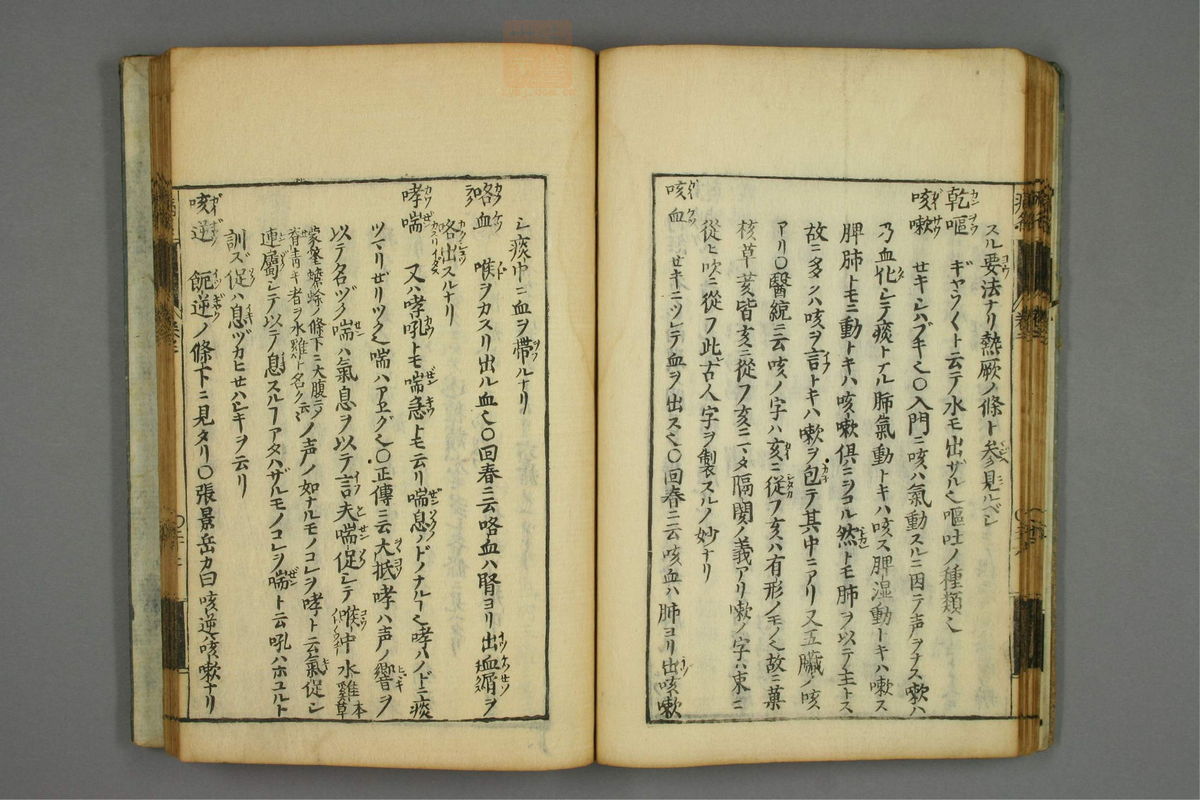 スル要法ナリ熱厥ノ條ト参見ルベシ
乾嘔 ギャウ〱ト云テ水モ出ザル也嘔吐ノ種類也
咳嗽 セキシハブキ也○入門ニ咳ハ氣動スルニ因テ声ヲナス嗽ハ
乃血化シテ痰トナル肺氣動トキハ咳ス脾湿動トキハ嗽ス
脾肺トモニ動トキハ咳嗽倶ニヲコル然トモ肺ヲ以テ主トス
故ニ多クハ咳ヲ言トキハ嗽ヲ包テ其中ニアリ又五臓ノ咳
アリ○醫統ニ云咳ノ字ハ亥ニ従フ亥ハ有形ノモノ也故ニ菓
核草荄皆亥ニ従フ亥ニマタ隔閡ノ義アリ嗽ノ字ハ束ニ
従ヒ吹ニ従フ此古人字ヲ製スルノ妙ナリ
咳血 セキニツレテ血ヲ出ス也○回春ニ云咳血ハ肺ヨリ出咳嗽
シ痰中ニ血ヲ帯ルナリ
咯血 喉ヲカスリ出ル血也○回春ニ云咯血ハ腎ヨリ出血屑ヲ
咯出スルナリ
哮喘 又ハ哮吼トモ喘急トモ云リ喘息ノドノナル也哮ハノドニ痰
ツマリゼリツク也喘ハアヱグ也○正傳ニ云大抵哮ハ声ノ響ヲ
以テ名ヅク喘ハ氣息ヲ以テ言夫喘促シテ喉中水雞本草
ノ声ノ如ナルモノコレヲ哮ト云氣促シ
連屬シテ以テ息スルフアタハザルモノコレヲ喘ト云吼ハホユルト
訓ズ促ハ息ヅカヒセハシキヲ云リ
咳逆 呃逆ノ條下ニ見タリ○張景岳カ曰咳逆ハ咳嗽ナリ